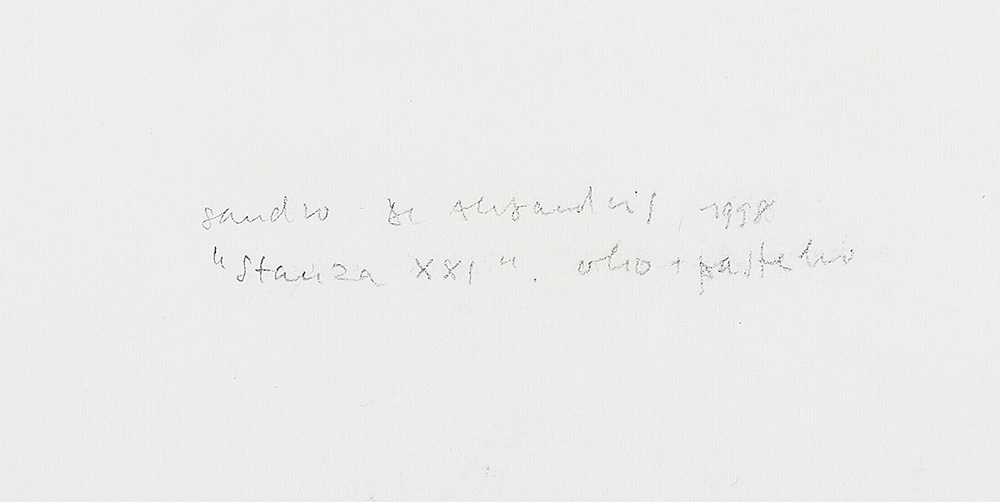 sandro De Alexandris, 1998
"Stanza XXI". olio + pastello